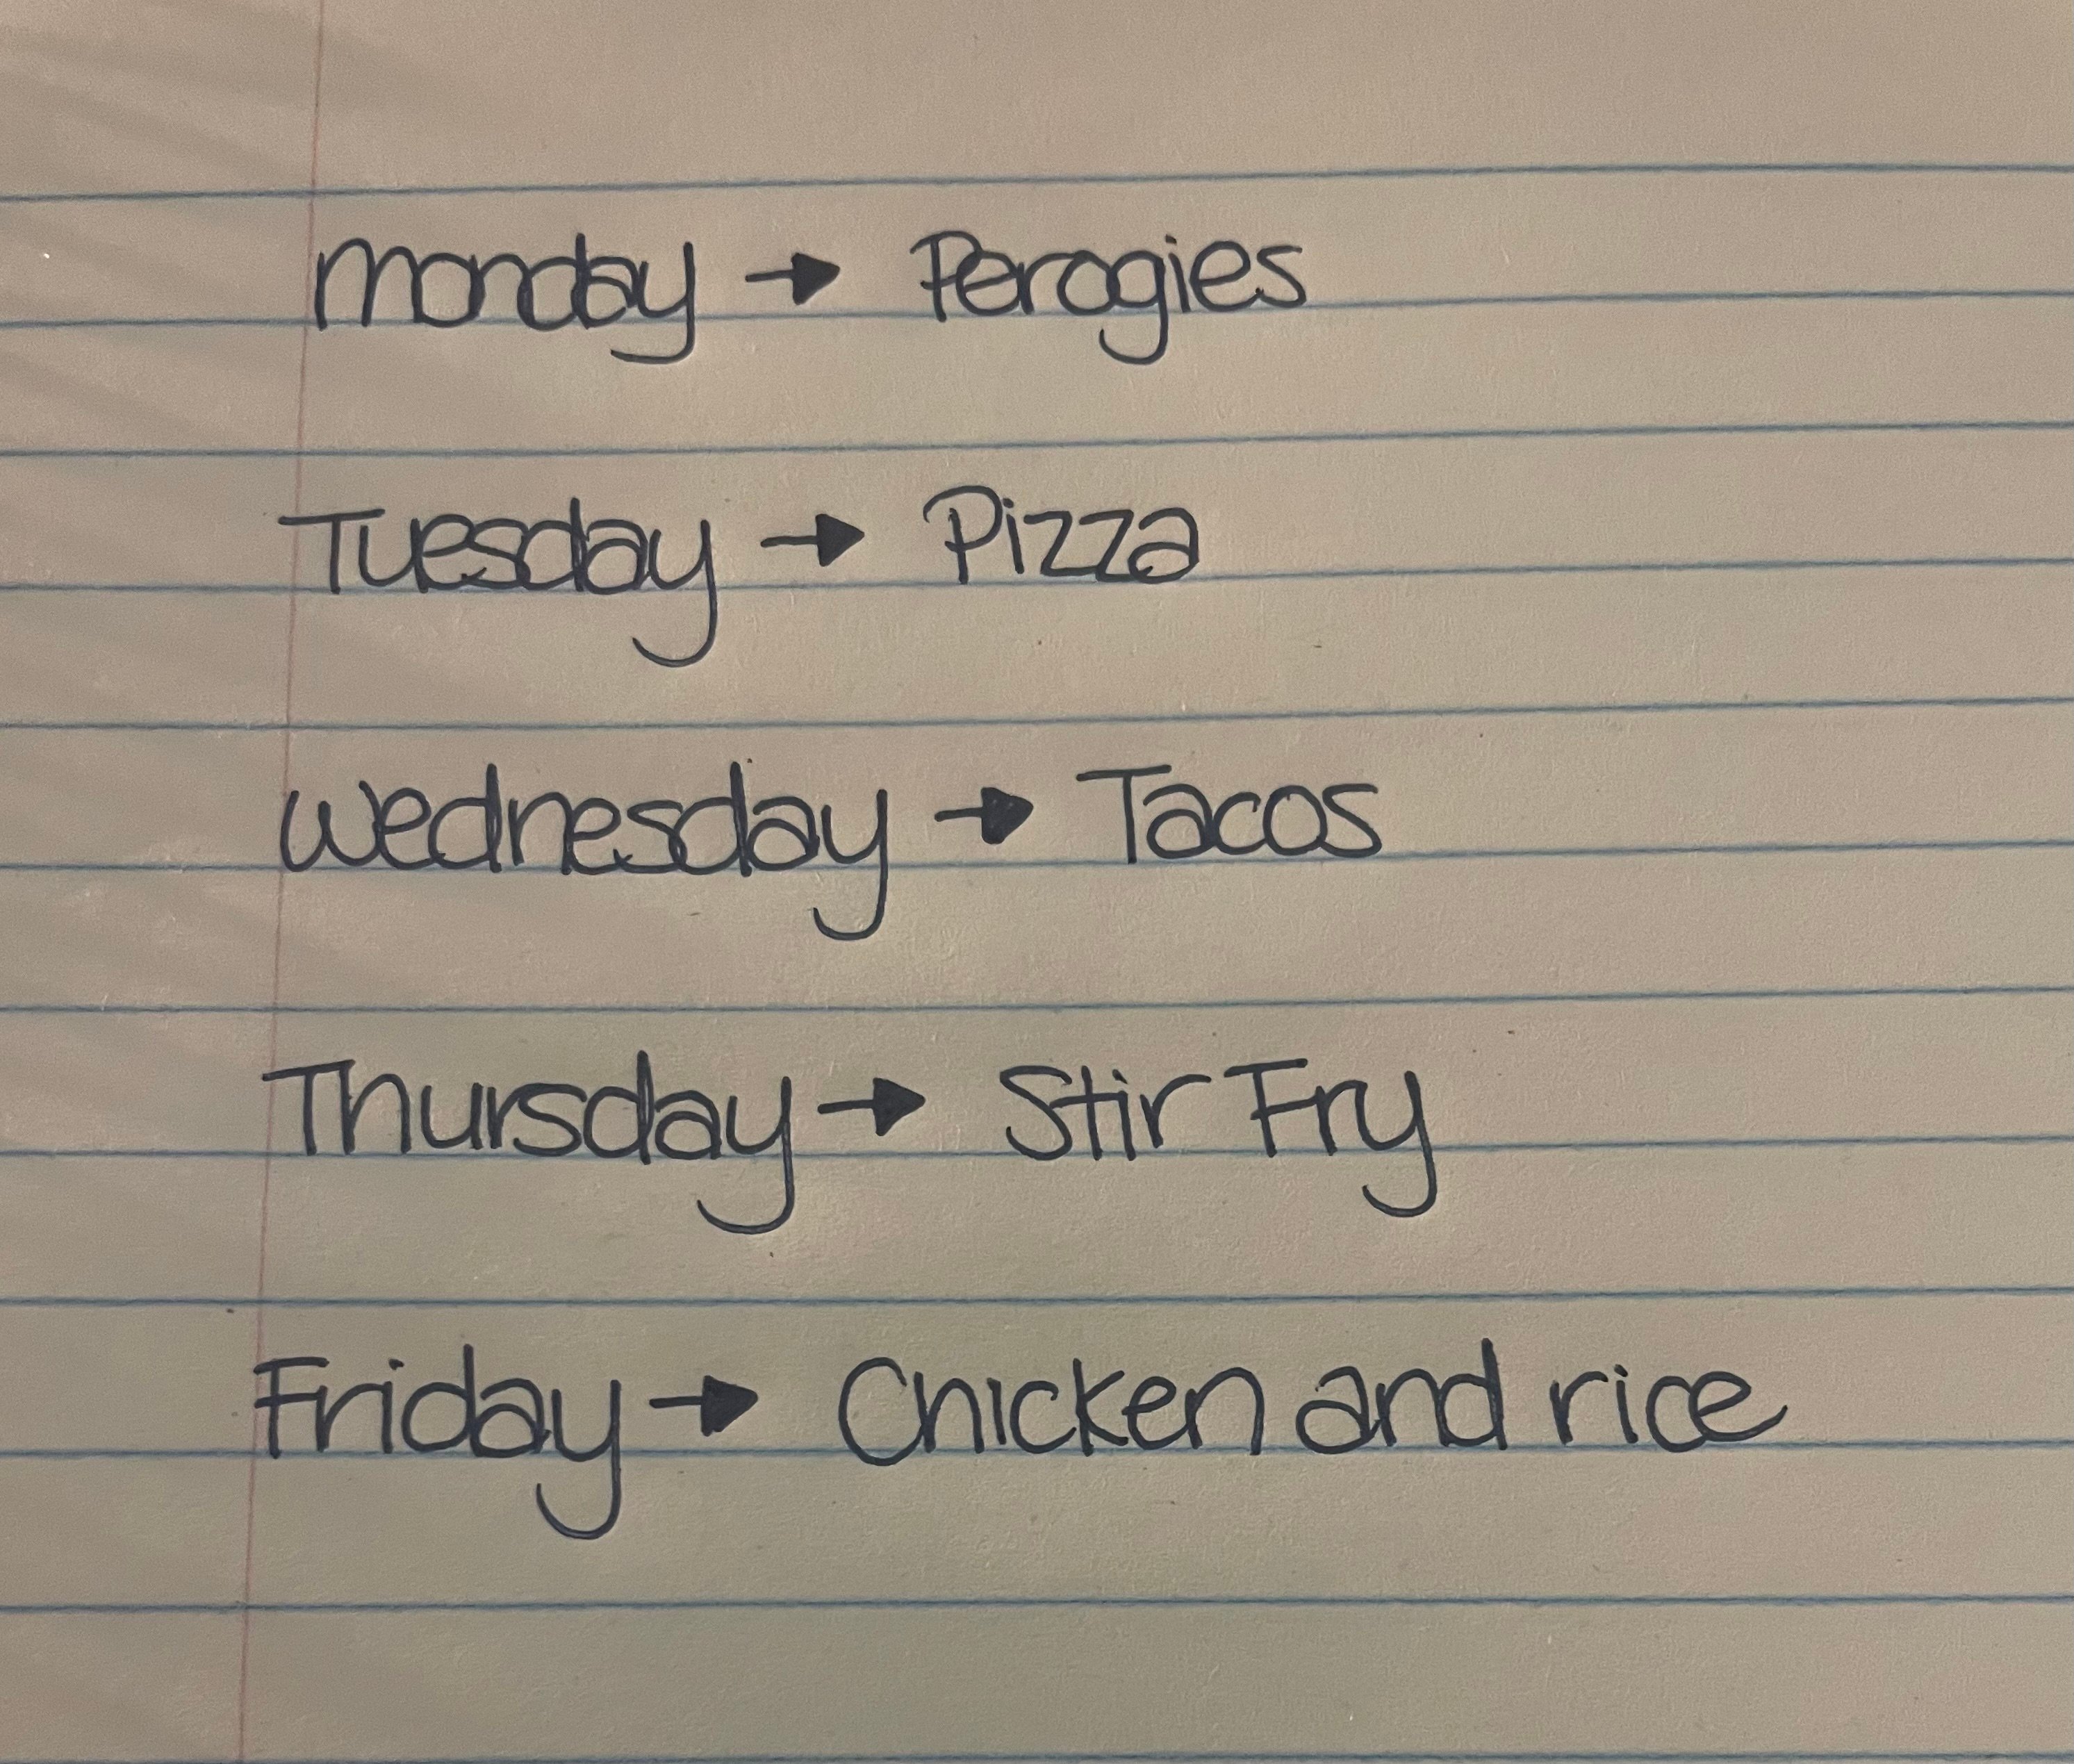 Monday → Perogies
Tuesday → Pizza
Wednesday → Tacos
Thursday → Stir Fry
Friday → Chicken and rice